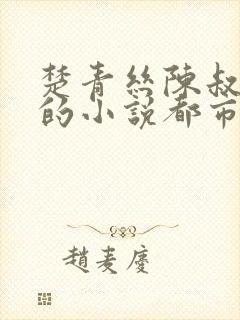 楚青絲陳叔
的小說都市
趙麦慶